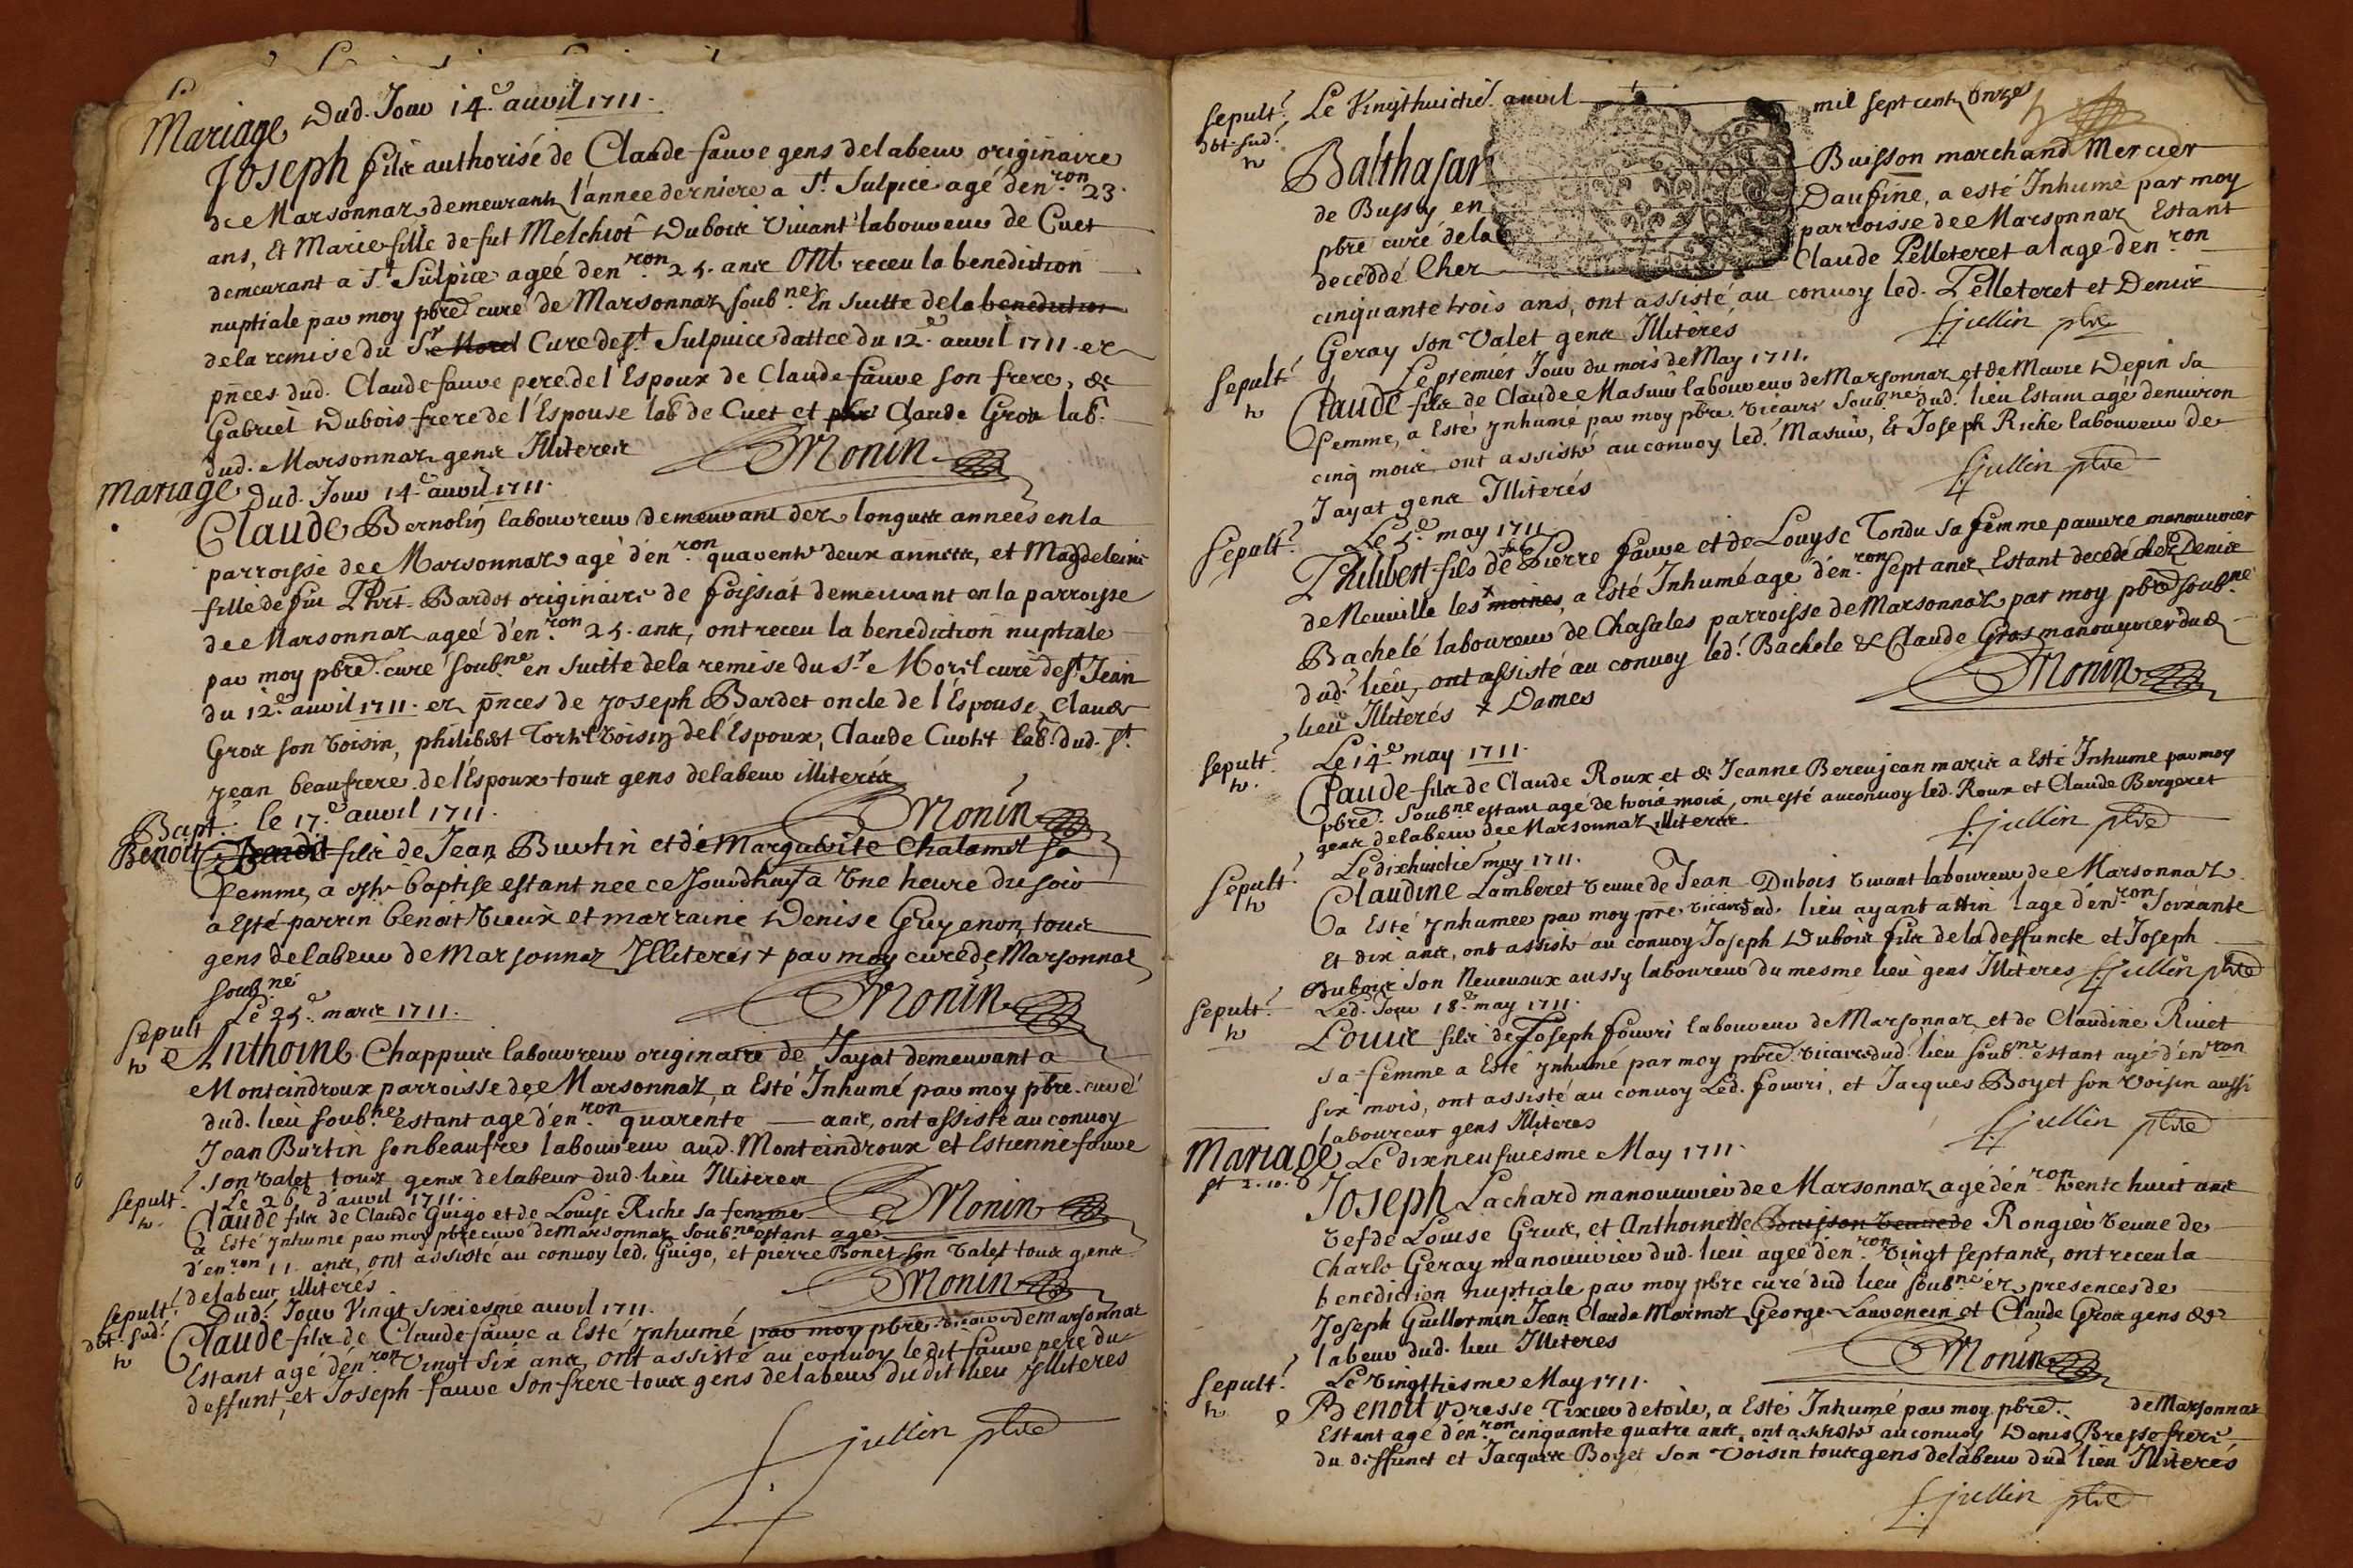 Mariage Dud. Jour 14.e auvil 1711.
Joseph fils authorisé de Claude fauve gens delabeur originaire
de Marsonnaz demeurant l'annee derniere a St. Sulpice agé d'en.ron 23.
ans, Et Marie fille de fut Melchiot Dubois Vivant laboureur de Cuet
demeurant a St. Sulpice ageé d'en.ron 25. ans ont receu la benediction
nuptiale par moy pbre curé de Marsonnaz soub.né En suitte de la benediction
de la remise du Sr. Morel Curé de St. Sulpuice dattee du 12.e auvil 1711. en
pnces dud. Claude fauve pere de l'Espoux de Claude fauve son frere, &
Gabriel Dubois frere de l'Espouse lab. de Cuet et Claude Gros lab.
dud. Marsonnaz gens Illiteres
Monin
Mariage Dud. Jour 14.e auvil 1711.
Claude Bernolin laboureur demeurant des longues années en la
parroisse de Marsonnaz agé d'en.ron quarente deux annees, et Magdeleine
fille de fut Phit. Bardet originaire de foissiat demeurant en la parroisse
de Marsonnaz ageé d'en.ron 25. ans, ont receu la benediction nuptiale
par moy pbre. curé soub.né en suitte de la remise du Sr. Morel curé de St. Jean
du 12.e auvil 1711. en pnces de Joseph Bardet oncle de l'Espouse, Claude
Gros son voisin, philibert voisin de l'Espoux, Claude lab. dud. St.
Jean beaufrere de l'Espoux tous gens delabeur illiterés
Monin
Bapt. le 17.e auvil 1711.
Benoit Benoit fils de Jean Burtin et de Marguerite Chalamet sa
femme, a esté baptise estant nee ce Jourdhuy a Une heure du soir
a Esté parrin benoit Vieux et marraine Denise Guyenon tous
gens delabeur de Marsonnaz Illiterés + par moy curé de Marsonnaz
soub.né
Monin
Sepult Le 25.e mars 1711.
h Anthoine Chappuis laboureur originaire de Jayat demeurant a
Monteindroux parroisse de Marsonnaz, a Esté Inhumé par moy pbre. curé
dud. lieu soub.né estant agé d'en.ron quarente — ans, ont assisté au convoy
Jean Burtin son beaufre laboureur aud. Monteindroux et Estienne fauve
son valet tous gens delabeur dud. lieu Illiteres
Monin
Sepult. Le 26.e d'auvil 1711.
h. Claude fils de Claude Guigo et de Louise Riche sa femme
a Esté ynhumé par moy pbre curé de Marsonnaz soub.né estant agé
d'en.ron 11. ans, ont assisté au convoy led. Guigo, et pierre Bonet son valet tous gens
delabeur illiteres
Monin
Sepult. Dud. Jour Vingt sixiesme auvil 1711.
dbt. sud.
h Claude fils de Claude fauve a Esté ynhumé par moy pbre. vicaire de Marsonnaz
Estant agé d'en.ron Vingt six ans, ont assisté au convoy ledit fauve pere du
deffunt, et Joseph fauve son frere tous gens delabeur dudit lieu Illiteres
f. jullin pbre
Sepult. Le Vingthuictie. auvil mil sept cent Onze
dbt. sud.
h
Balthasar Buisson marchand Mercier
de Bussy en Daufine, a esté Inhumé par moy
pbre curé de la parroisse de Marsonnaz Estant
deceddé Chez Claude Pelleteret a lage d'en.ron
cinquante trois ans, ont assisté au convoy led. Pelleteret et Denis
Geray son Valet gens Illiterés
f. jullin pbre
Sepult. Le premier Jour du mois de May 1711.
h Claude fils de Claude Masuir laboureur de Marsonnaz et de Marie Depin sa
femme, a Esté ynhumé par moy pbre vicaire soub.né dud. lieu Estant agé denviron
cinq mois ont assisté au convoy led. Masuir, Et Joseph Riche laboureur de
Jayat gens Illiterés
f. jullin pbre
Sepult. Le 5.e may 1711.
Philibert fils de Pierre fauve et de Louyse Tondu sa femme pauvre manouvrier
de Neuville les moines, a Esté Inhumé age d'en.ron sept ans, Estant decedé chez Denis
Bachelé laboureur de Chasales parroisse de Marsonnaz par moy pbre soub.né
dud. lieu, ont assisté au convoy led. Bachele & Claude Gros manouvrier dud.
lieu Illiterés + Dames
Monin
Sepult. Le 14.e may 1711.
h. Claude fils de Claude Roux et de Jeanne Bereujean maris a Esté Inhumé par moy
pbre. soub.né estant agé de trois mois, ont esté au convoy led. Roux et Claude Bergeret
gens delabeur de Marsonnaz illiteres
f. jullin pbre
Sepult. Le dixhuictie may 1711.
h Claudine Lamberet veuve de Jean Dubois vivant laboureur de Marsonnaz
a Esté ynhumee par moy pre. vicaire dud. lieu ayant attin lagé d'en.ron Soixante
Et dix ans, ont assisté au convoy Joseph Dubois fils de la deffuncte et Joseph
Dubois son Neuveux aussy laboureur du mesme lieu gens Illiteres f. jullin pbre
Sepult. Led. Jour 18.e may 1711.
h Louis fils de Joseph fouvri laboureur de Marsonnaz et de Claudine Rivet
sa femme a Esté ynhumé par moy pbre. vicaire dud. lieu soub.né estant agé d'en.ron
six mois, ont assisté au convoy Led. fouvri, et Jacques Boyet son voisin aussi
laboureur gens Illiteres
f. jullin pbre
Mariage Le dixneufviesme May 1711.
Joseph Lachard manouvrier de Marsonnaz agé d'en.ron trente huit ans
vef de Louise Gruis, et Anthoinette Buisson veuve de Rongier veuve de
Charlo Geray manouvrier dud. lieu ageé d'en.ron vingt sept ans, ont receu la
benediction nuptiale par moy pbre curé dud. lieu soub.né en presences de
Joseph Guillermin Jean Claude Marmot George Lauvencin et Claude Gros gens de
labeur dud. lieu Illiteres
Monin
Sepult. Le vingthiesme May 1711.
h Benoit Bresse Tixier de toile, a Esté Inhumé par moy pbre. de Marsonnaz
Estant agé d'en.ron cinquante quatre ans, ont assisté au convoy Denis Bresse frere
du deffunct et Jacques Boyet son voisin tous gens delabeur dud. lieu Illiterés
f. jullin pbre